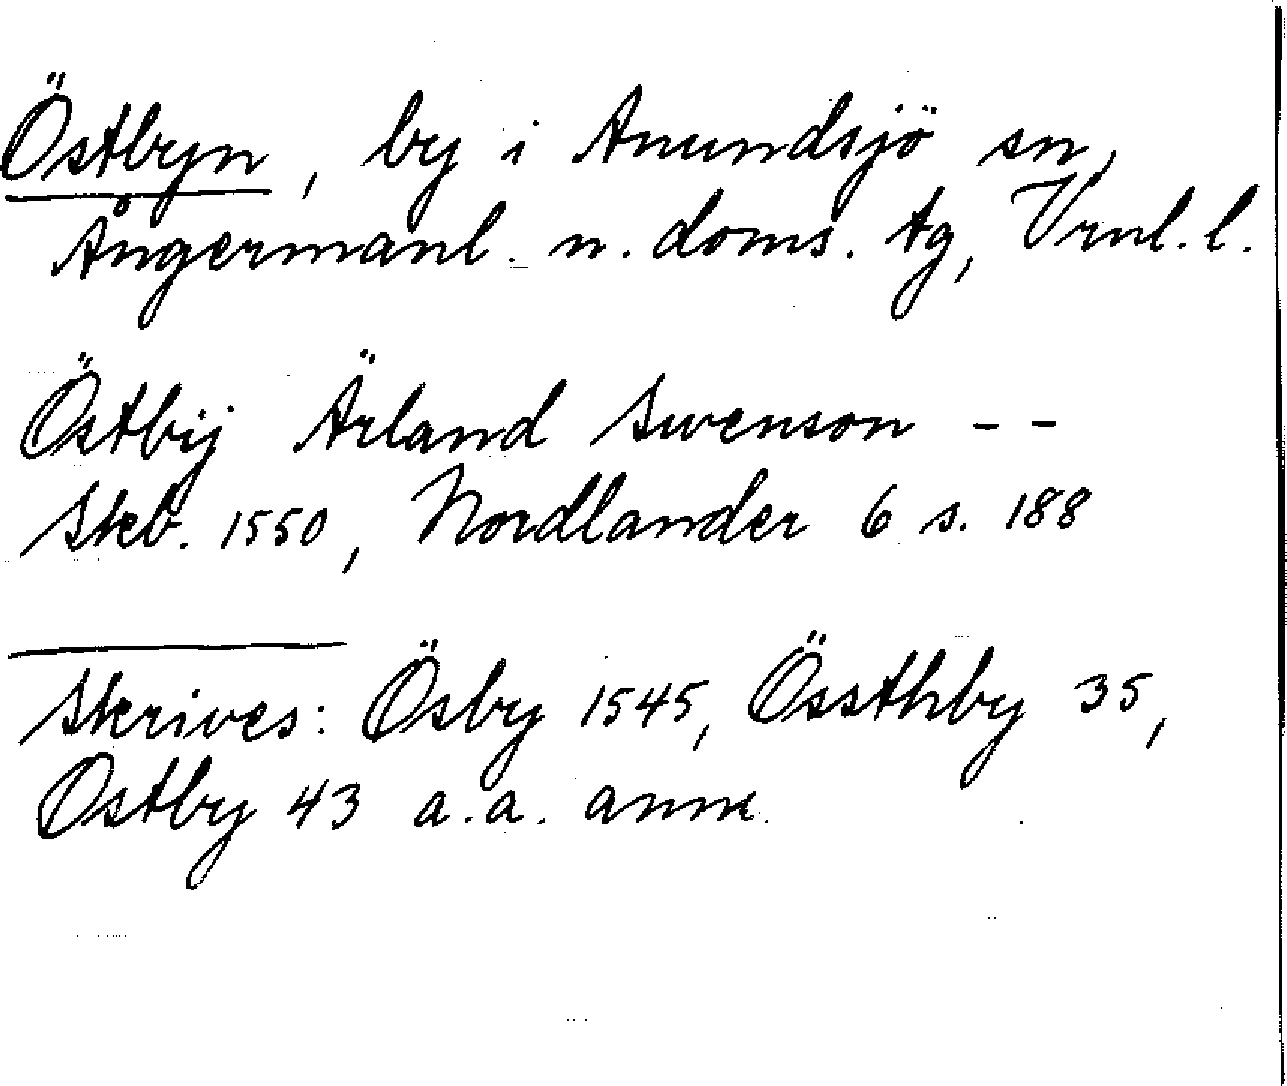 Östbyn, by i Anundsjö sn,
Ångermanl. n. doms. tg, Vrnl. l.
Östbÿ Ärland Swenson - -
Skb. 1550, Nordlander 6 s. 188
Skrives: Ösby 1545, Össthby 35,
Östby 43 a.a. anm.